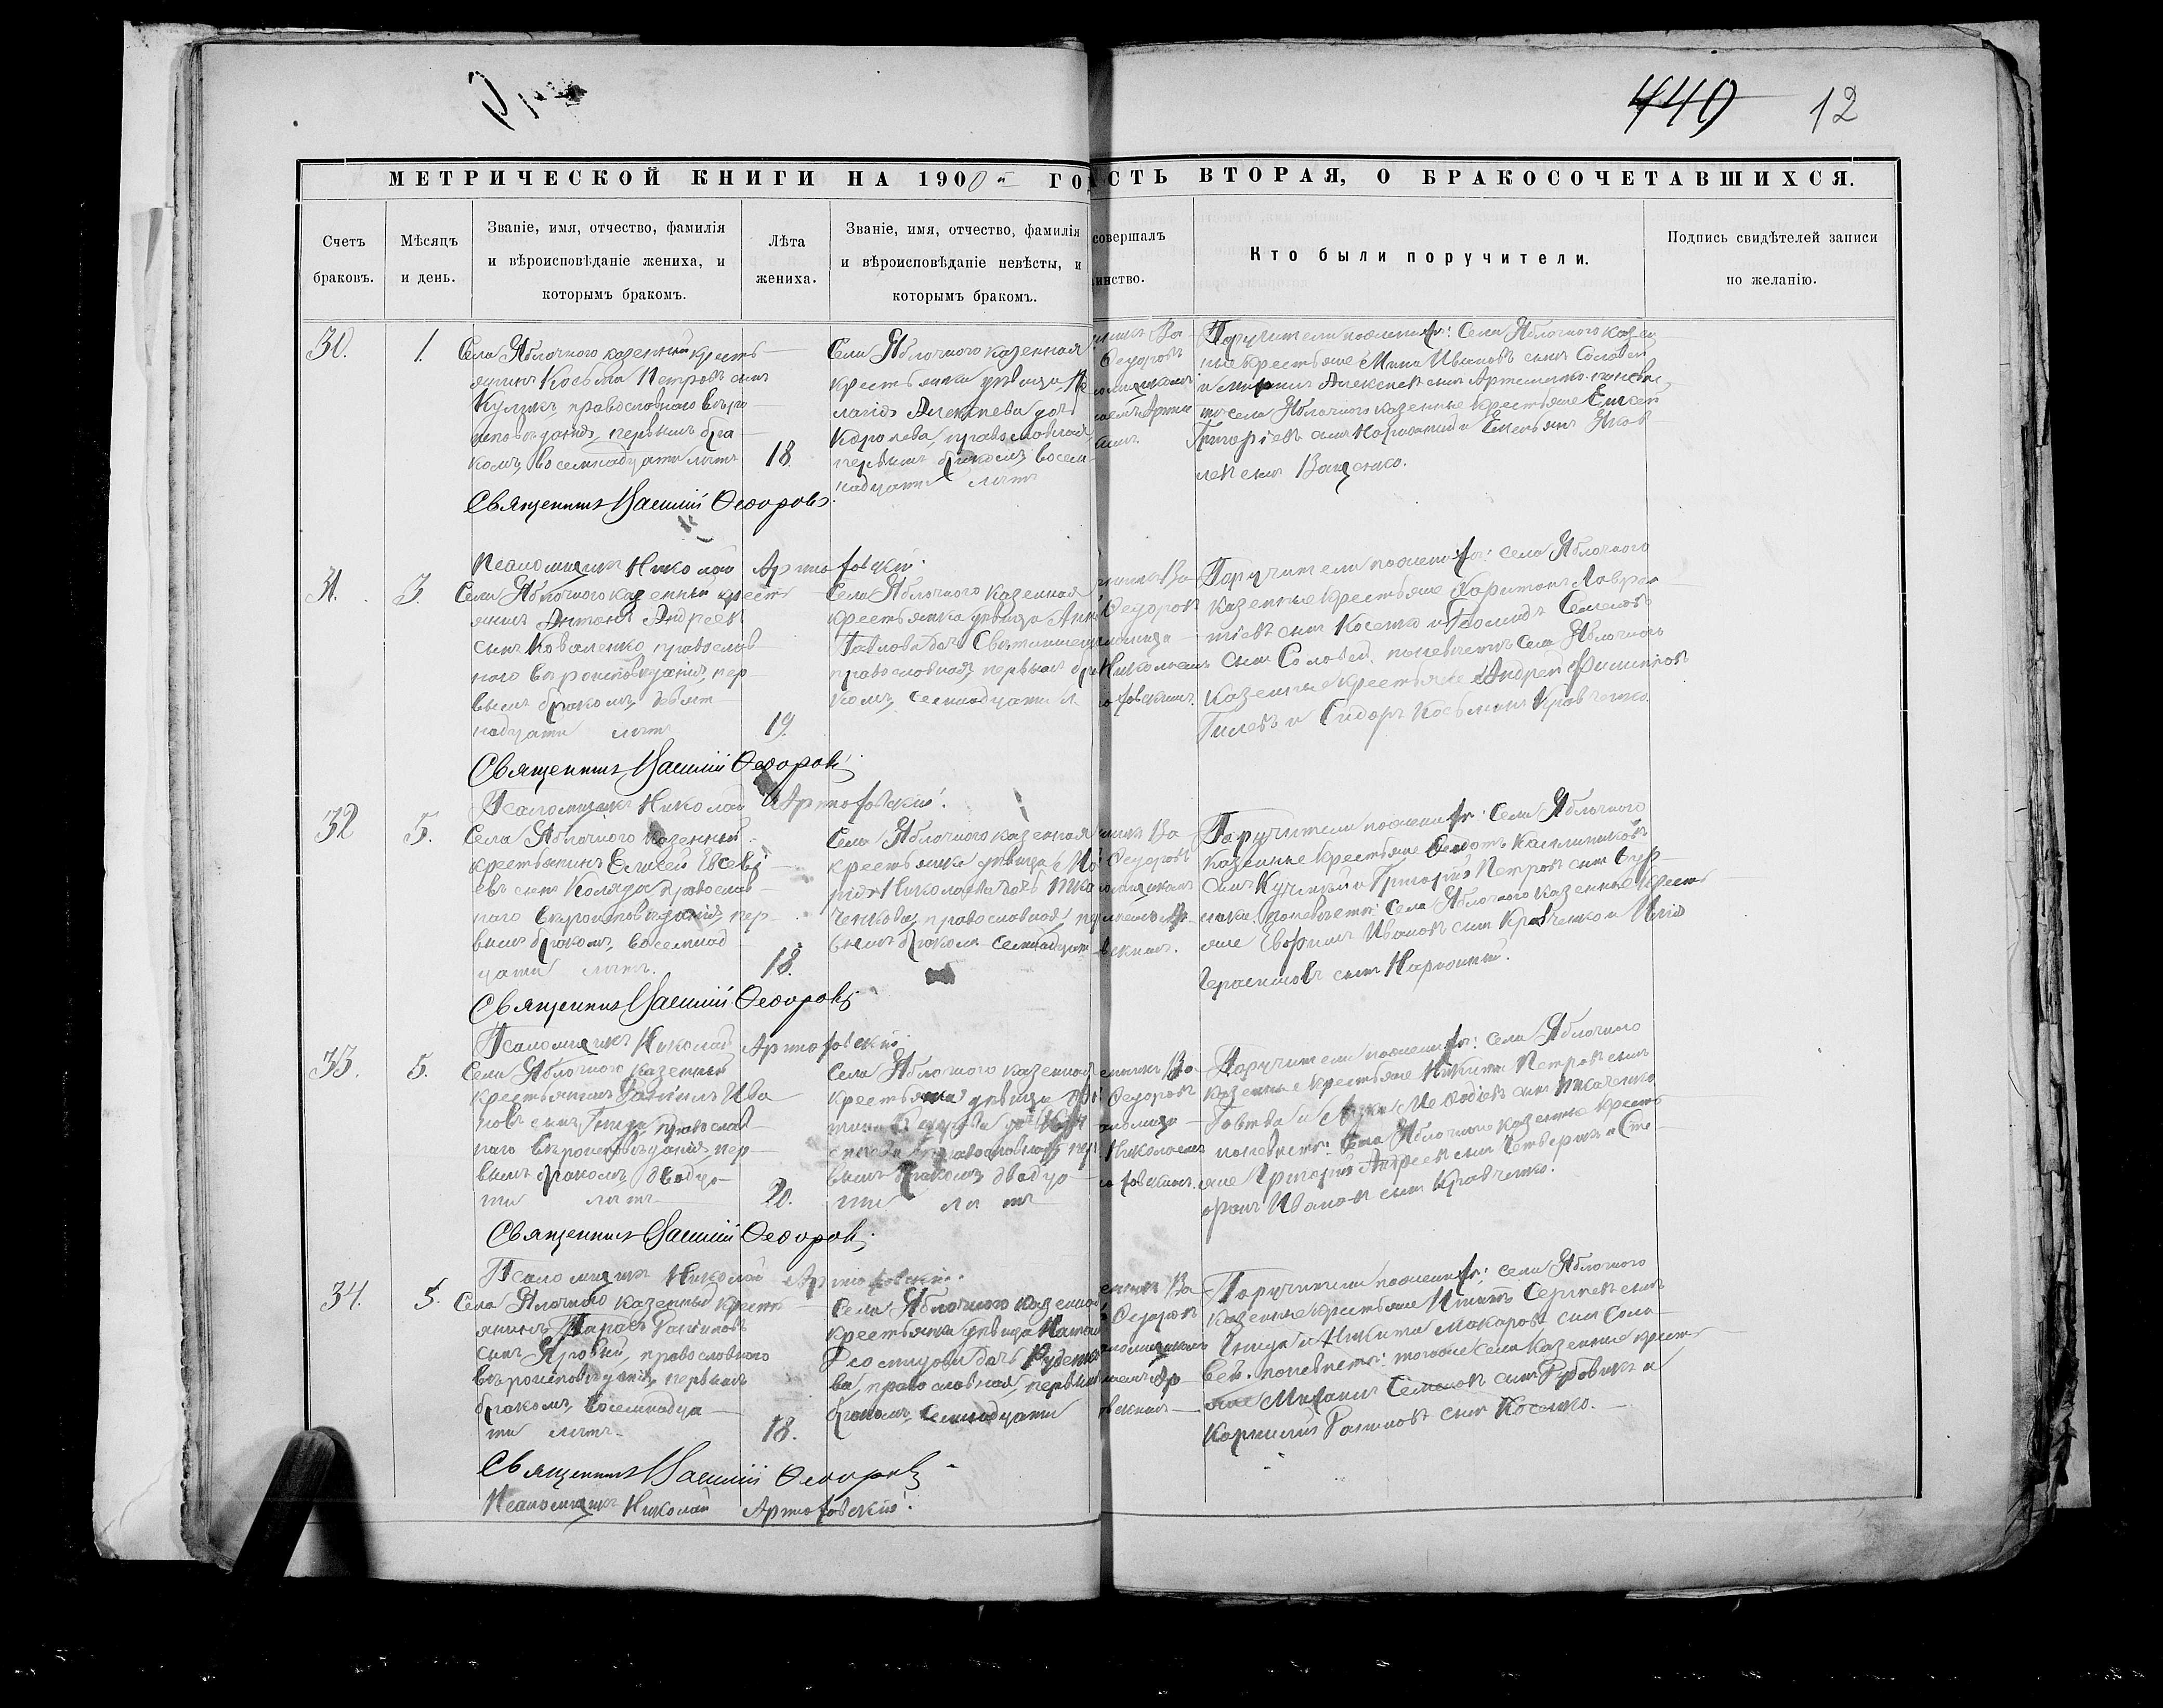 440 12
МЕТРИЧЕСКОЙ КНИГИ НА 1900й ГО
СТЬ ВТОРАЯ, О БРАКОСОЧЕТАВШИХСЯ.
Счетъ браковъ.
Мѣсяцъ и день.
Званіе, имя, отчество, фамилія
и вѣроисповѣданіе жениха, и
которымъ бракомъ.
Лѣта
жениха.
Званіе, имя, отчество, фамилія
и вѣроисповѣданіе невѣсты, и
которымъ бракомъ.
совершалъ
инство.
Кто были поручители.
Подпись свидѣтелей записи
по желанію.
30.
1.
Села Яблочного казенный кресть
янинъ Косьма Петровъ сынъ
православнаго вѣро
исповѣданія, первымъ бра
комъ, восемнадцати лѣтъ
18.
Села Яблочного казенная
крестьянка дѣвица Пе
лагія Алексѣева дочь
Королева, православная,
первымъ бракомъ, восем
надцати лѣтъ
Ва
Федоровъ
Поручители по женихѣ: Села Яблочного казен
ные крестьяне Мина Ивановъ сынъ Соловей
Алексѣевъ сынъ Артеменко
села Яблочного казенные крестьяне Елисей
Григорьевъ сынъ и Емельянъ Яков
левъ сынъ Ващенко.
Священникъ Василій Федоровъ.
Псаломщикъ Николай Артюховскій.
31.
3.
Села Яблочного казенный кресть
янинъ Антонъ Андреевъ
сынъ Коваленко, православ
наго вѣроисповѣданія, пер
вымъ бракомъ, девят
надцати лѣтъ
19.
Села Яблочного казенная
крестьянка дѣвица Анна
Павлова дочь
православная, первымъ бра
комъ, семнадцати л
Федоров
Николаемъ
ховскимъ.
Поручители по женихѣ: села Яблочного
казенные крестьяне Харитонъ Лаврен
тіевъ сынъ Косенко и Семеновъ
сынъ Соловей, по невѣстѣ: Села Яблочного
казенные крестьяне Андрей Филиповъ
Гилевъ и Сидоръ Косьминъ Кравченко.
Священникъ Василій Федоровъ.
Псаломщикъ Николай Артюховскій.
32
5.
Села Яблочного казенный
крестьянинъ Елисей Евсеві
евъ сынъ Коляда, православ
наго вѣроисповѣданія, пер
вымъ бракомъ, восемнад
цати лѣтъ.
18.
Села Яблочного казенная
крестьянка дѣвица Ма
рія Николаева дочь Тка
ченкова, православная, пе
вымъ бракомъ семнадцат
Ва
Федоровъ
вскимъ.
Поручители по женихѣ: Села Яблочного
казенные крестьяне Федотъ Каллиниковъ
сынъ и Григорій Петровъ сынъ
по невѣстѣ: Села Яблочного казенные кресть
яне Ефимъ Ивановъ сынъ Кравченко и Илія
Герасимовъ сынъ
Священникъ Василій Федоровъ.
Псаломщикъ Николай Артюховскій.
33.
5.
Села Яблочного казенный
крестьянинъ Даніилъ Ива
новъ сынъ православ
наго вѣроисповѣданія, пер
вымъ бракомъ, двадца
ти лѣтъ
20.
Села Яблочного казенная
крестьянка дѣвица
православная, пер
вымъ бракомъ, двадца
ти лѣтъ
Ва
Федоровъ
Николаемъ
ховскимъ.
Поручители по женихѣ: села Яблочного
казенные крестьяне Никита Петровъ сынъ
и Лука Меѳодіевъ сынъ Ткаченко
по невѣстѣ: Села Яблочного казенные кресть
яне Григорій Андреевъ сынъ Четверикъ и Сте
фанъ Ивановъ сынъ Кравченко.
Священникъ Василій Федоровъ.
Псаломщикъ Николай Артюховскій.
34.
5.
Села Яблочного казенный кресть
янинъ Тарасъ Даніиловъ
сынъ Яровый, православного
вѣроисповѣданія, первымъ
бракомъ, восемнадца
ти лѣтъ.
18.
Села Яблочного казенная
крестьянка дѣвица Натал
дочь Руденко
ва, православная, первым
бракомъ, семнадцати
Ва
Федоровъ
вскимъ
Поручители по женихѣ: села Яблочного
казенные крестьяне Сергеевъ сынъ
и Никита Макаровъ сынъ Соло
вей. по невѣстѣ: того же села казенные кресть
яне Михаилъ Семеновъ сынъ и
Корнилій сынъ Косенко.
Священникъ Василій Федоровъ
Псаломщикъ Николай Артюховскій.